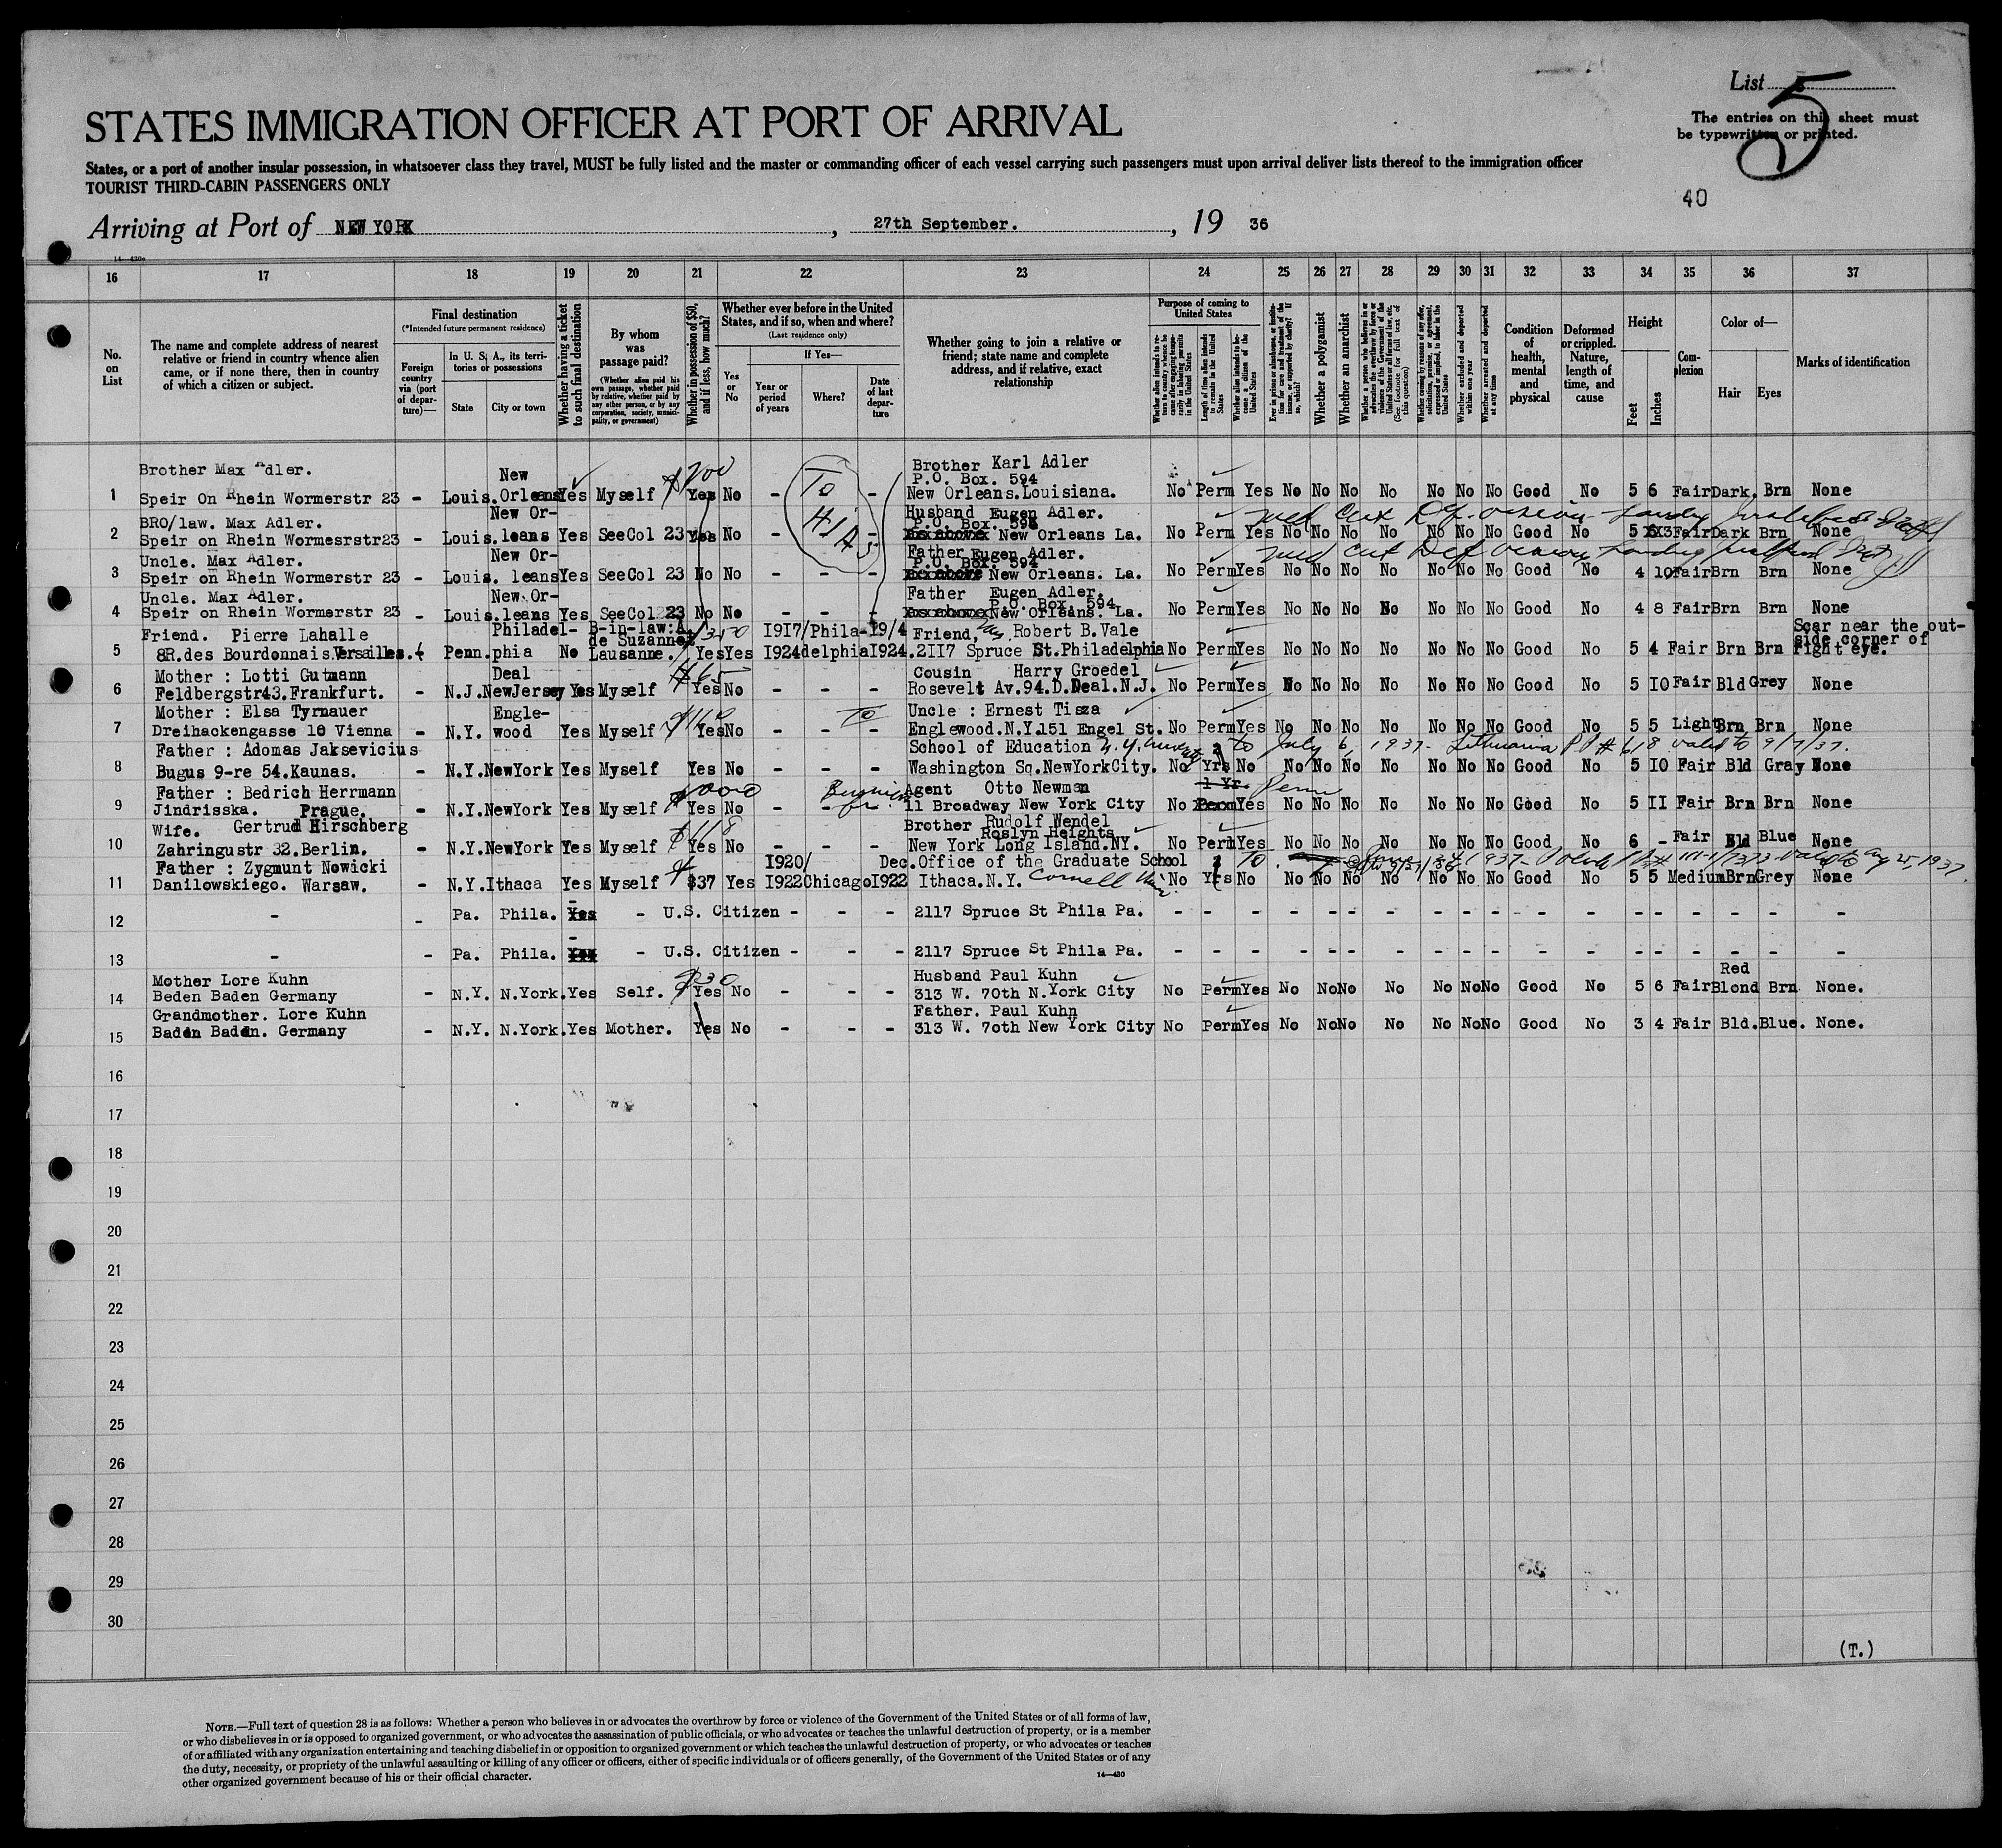 List 5
5
The entries on this sheet must
be typewritten or printed.
STATES IMMIGRATION OFFICER AT PORT OF ARRIVAL
States, or a port of another insular possession, in whatsoever class they travel, MUST be fully listed and the master or commanding officer of each vessel carrying such passengers must upon arrival deliver lists thereof to the immigration officer
TOURIST THIRD-CABIN PASSENGERS ONLY
40
Arriving at Port of NEW YORK, 27th September., 19 36
14—430a
16 17 18 19 20 21 22 23 24 25 26 27 28 29 30 31 32 33 34 35 36 37
No. on List
The name and complete address of nearest relative or friend in country whence alien came, or if none there, then in country of which a citizen or subject.
Final destination
(*Intended future permanent residence)
Foreign country via (port of departure)—
In U. S. A., its territories or possessions
State
City or town
Whether having a ticket to such final destination
By whom was passage paid?
(Whether alien paid his own passage, whether paid by relative, whether paid by any other person, or by any corporation, society, municipality, or government)
Whether in possession of $50, and if less, how much?
Whether ever before in the United States, and if so, when and where?
(Last residence only)
Yes or No
If Yes—
Year or period of years
Where?
Date of last departure
Whether going to join a relative or friend; state name and complete address, and if relative, exact relationship
Purpose of coming to United States
Whether alien intends to return to country whence he came after engaging temporarily in laboring pursuits in the United States
Length of time alien intends to remain in the United States
Whether alien intends to become a citizen of the United States
Ever in prison or almshouse, or institution for care and treatment of the insane, or supported by charity? If so, which?
Whether a polygamist
Whether an anarchist
Whether a person who believes in or advocates the overthrow by force or violence of the Government of the United States or all forms of law, etc. (See footnote for full text of this question)
Whether coming by reasons of any offer, solicitation, promise, or agreement, expressed or implied, to labor in the United States
Whether excluded and deported within one year
Whether arrested and deported at any time
Condition of health, mental and physical
Deformed or crippled. Nature, length of time, and cause
Height
Feet
Inches
Complexion
Color of—
Hair
Eyes
Marks of identification
Brother Max Adler. New $200 Brother Karl Adler
P.O. Box. 594
1 Speir On Rhein Wormerstr 23 - Louis. Orleans Yes Myself Yes No - To - New Orleans.Louisiana. No Perm Yes No No No No No No No Good No 5 6 Fair Dark. Brn None
BRO/law. Max Adler. New Or- HIAS Husband Eugen Adler.
P.O. Box. 594
2 Speir on Rhein Wormesrstr23 - Louis. leans Yes SeeCol 23 Yes No - - New Orleans La. No Perm Yes No No No No No No No Good No 5 Fair Dark Brn None
Uncle. Max Adler. New Or- Father Eugen Adler.
P.O. Box. 594
3 Speir on Rhein Wormerstr 23 - Louis. leans Yes SeeCol 23 No No - - - New Orleans. La. No Perm Yes No No No No No No No Good No 4 10 Fair Brn Brn None
Uncle. Max Adler. New Or- Father Eugen Adler.
P.O. Box. 594
4 Speir on Rhein Wormerstr 23 - Louis. leans Yes SeeCol 23 No No - - - New Orleans. La. No Perm Yes No No No No No No No Good No 4 8 Fair Brn Brn None
Friend. Pierre Lahalle Philadel- B-in-law:A. $350 1917/ Phila- 19/4 Friend, Mrs Robert B.Vale Scar near the out-
de Suzannet side corner of
5 8R.des Bourdonnais.Versailles. Penn. phia No Lausanne. Yes Yes 1924 delphia 1924. 2117 Spruce St.Philadelphia No Perm Yes No No No No No No No Good No 5 4 Fair Brn Brn right eye.
Mother : Lotti Gutmann Deal $65 Cousin Harry Groedel
6 Feldbergstr43.Frankfurt. - N.J. NewJersey Yes Myself Yes No - - - Rosevelt Av.94.D.Deal.N.J. No Perm Yes No No No No No No No Good No 5 10 Fair Bld Grey None
Mother : Elsa Tyrnauer Engle- $160 To Uncle : Ernest Tisza
7 Dreihackengasse 10 Vienna - N.Y. wood Yes Myself Yes No - - - Englewood.N.Y.151 Engel St. No Perm Yes No No No No No No No Good No 5 5 Light Brn Brn None
Father : Adomas Jaksevicius School of Education N.Y. University to July 6, 1937 - Lithuania P.P # 618 valid to 9/7/37.
8 Bugus 9-re 54.Kaunas. - N.Y. NewYork Yes Myself Yes No - - - Washington Sq.NewYorkCity. No Yrs No No No No No No No No Good No 5 10 Fair Bld Gray None
Father : Bedrich Herrmann Business Agent Otto Newman 1 Yr. Perm
9 Jindrisska. Prague. - N.Y. NewYork Yes Myself Yes No - - 11 Broadway New York City No Perm Yes No No No No No No No Good No 5 11 Fair Brn Brn None
Wife. Gertrud Hirschberg $118 Brother Rudolf Wendel
Roslyn Heights
10 Zahringustr 32.Berlin. - N.Y. NewYork Yes Myself Yes No - - - New York Long Island.NY. No Perm Yes No No No No No No No Good No 6 - Fair Bld Blue None
Father : Zygmunt Nowicki 1920/ Dec. Office of the Graduate School 1 To 1937 - Polish valid to Aug 25, 1937.
11 Danilowskiego. Warsaw. - N.Y. Ithaca Yes Myself $37 Yes 1922 Chicago 1922 Ithaca.N.Y. Cornell Univ. No Yrs No No No No No No No No Good No 5 5 Medium Brn Grey None
12 - - Pa. Phila. Yes - U.S. Citizen - - - 2117 Spruce St Phila Pa. - - - - - - - - - - - - - - - - - -
13 - - Pa. Phila. Yes - U.S. Citizen - - - 2117 Spruce St Phila Pa. - - - - - - - - - - - - - - - - - -
Mother Lore Kuhn $30 Husband Paul Kuhn Red
14 Beden Baden Germany - N.Y. N.York. Yes Self. Yes No - - - 313 W. 70th N.York City No Perm Yes No No No No No No No Good No 5 6 Fair Blond Brn None.
Grandmother. Lore Kuhn Father. Paul Kuhn
15 Baden Baden. Germany - N.Y. N.York. Yes Mother. Yes No - - - 313 W. 70th New York City No Perm Yes No No No No No No No Good No 3 4 Fair Bld. Blue. None.
16
17
18
19
20
21
22
23
24
25
26
27
28
29
30
(T.)
NOTE.—Full text of question 28 is as follows: Whether a person who believes in or advocates the overthrow by force or violence of the Government of the United States or of all forms of law,
or who disbelieves in or is opposed to organized government, or who advocates the assassination of public officials, or who advocates or teaches the unlawful destruction of property, or is a member
of or affiliated with any organization entertaining and teaching disbelief in or opposition to organized government or which teaches the unlawful destruction of property, or who advocates or teaches
the duty, necessity, or propriety of the unlawful assaulting or killing of any officer or officers, either of specific individuals or of officers generally, of the Government of the United States or of any
other organized government because of his or their official character.
14—430